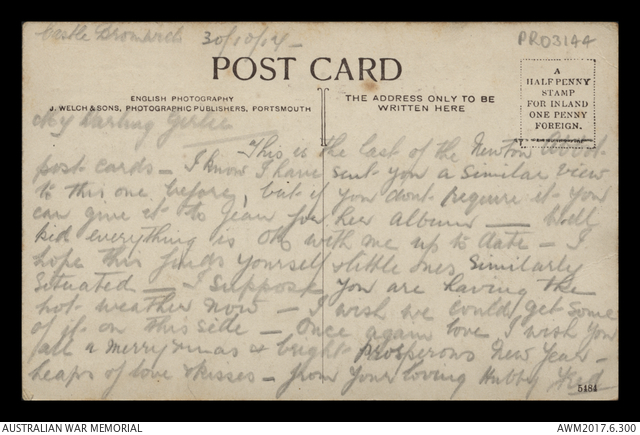 Castle Bromwich 30/10/17 -
PRO3144
POST CARD
ENGLISH PHOTOGRAPHY
J. WELCH & SONS, PHOTOGRAPHIC PUBLISHERS, PORTSMOUTH
THE ADDRESS ONLY TO BE
WRITTEN HERE
A
HALFPENNY
STAMP
FOR INLAND
ONE PENNY
FOREIGN.
My Darling Girlie
This is the last of the Newton Abbot
post cards - I know I have sent you a similar view
to this one before, but if you dont require it you
can give it to Jean for her album — Well
kid everything is ok with me up to date - I
hope this finds yourself & little ones similarly
situated - I suppose you are having the
hot weather now - I wish we could get some
of it on this side - Once again love I wish you
all a merry xmas & bright prosperous New Year -
heaps of love & kisses - from your loving Hubby Fred
5484
AUSTRALIAN WAR MEMORIAL
AWM2017.6.300